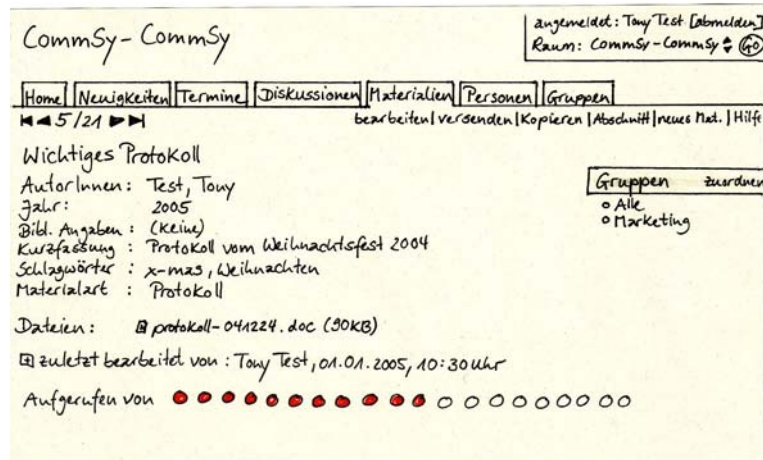 CommSy - CommSy
angemeldet: Tony Test [abmelden]
Raum: CommSy - CommSy Go
Home Neuigkeiten Termine Diskussionen Materialien Personen Gruppen
5/21
bearbeiten | versenden | Kopieren | Abschnitt | neues Mat. | Hilfe
Wichtiges Protokoll
AutorInnen: Test, Tony
Jahr: 2005
Bibl. Angaben: (Keine)
Kurzfassung: Protokoll vom Weihnachtsfest 2004
Schlagwörter: x-mas, Weihnachten
Materialart: Protokoll
Gruppen zuordnen
Alle
Marketing
Dateien: protokoll-041224.doc (90KB)
zuletzt bearbeitet von: Tony Test, 01.01.2005, 10:30 Uhr
Aufgerufen von